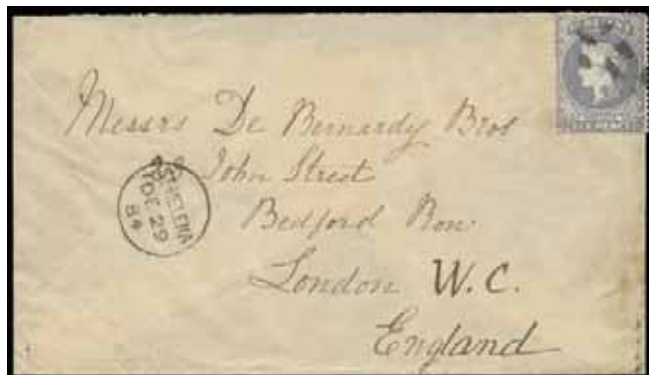 Messrs De Bernardy Bros
John Street
Bedford Row
London W.C.
England
ST. HELENA
DE 29
84